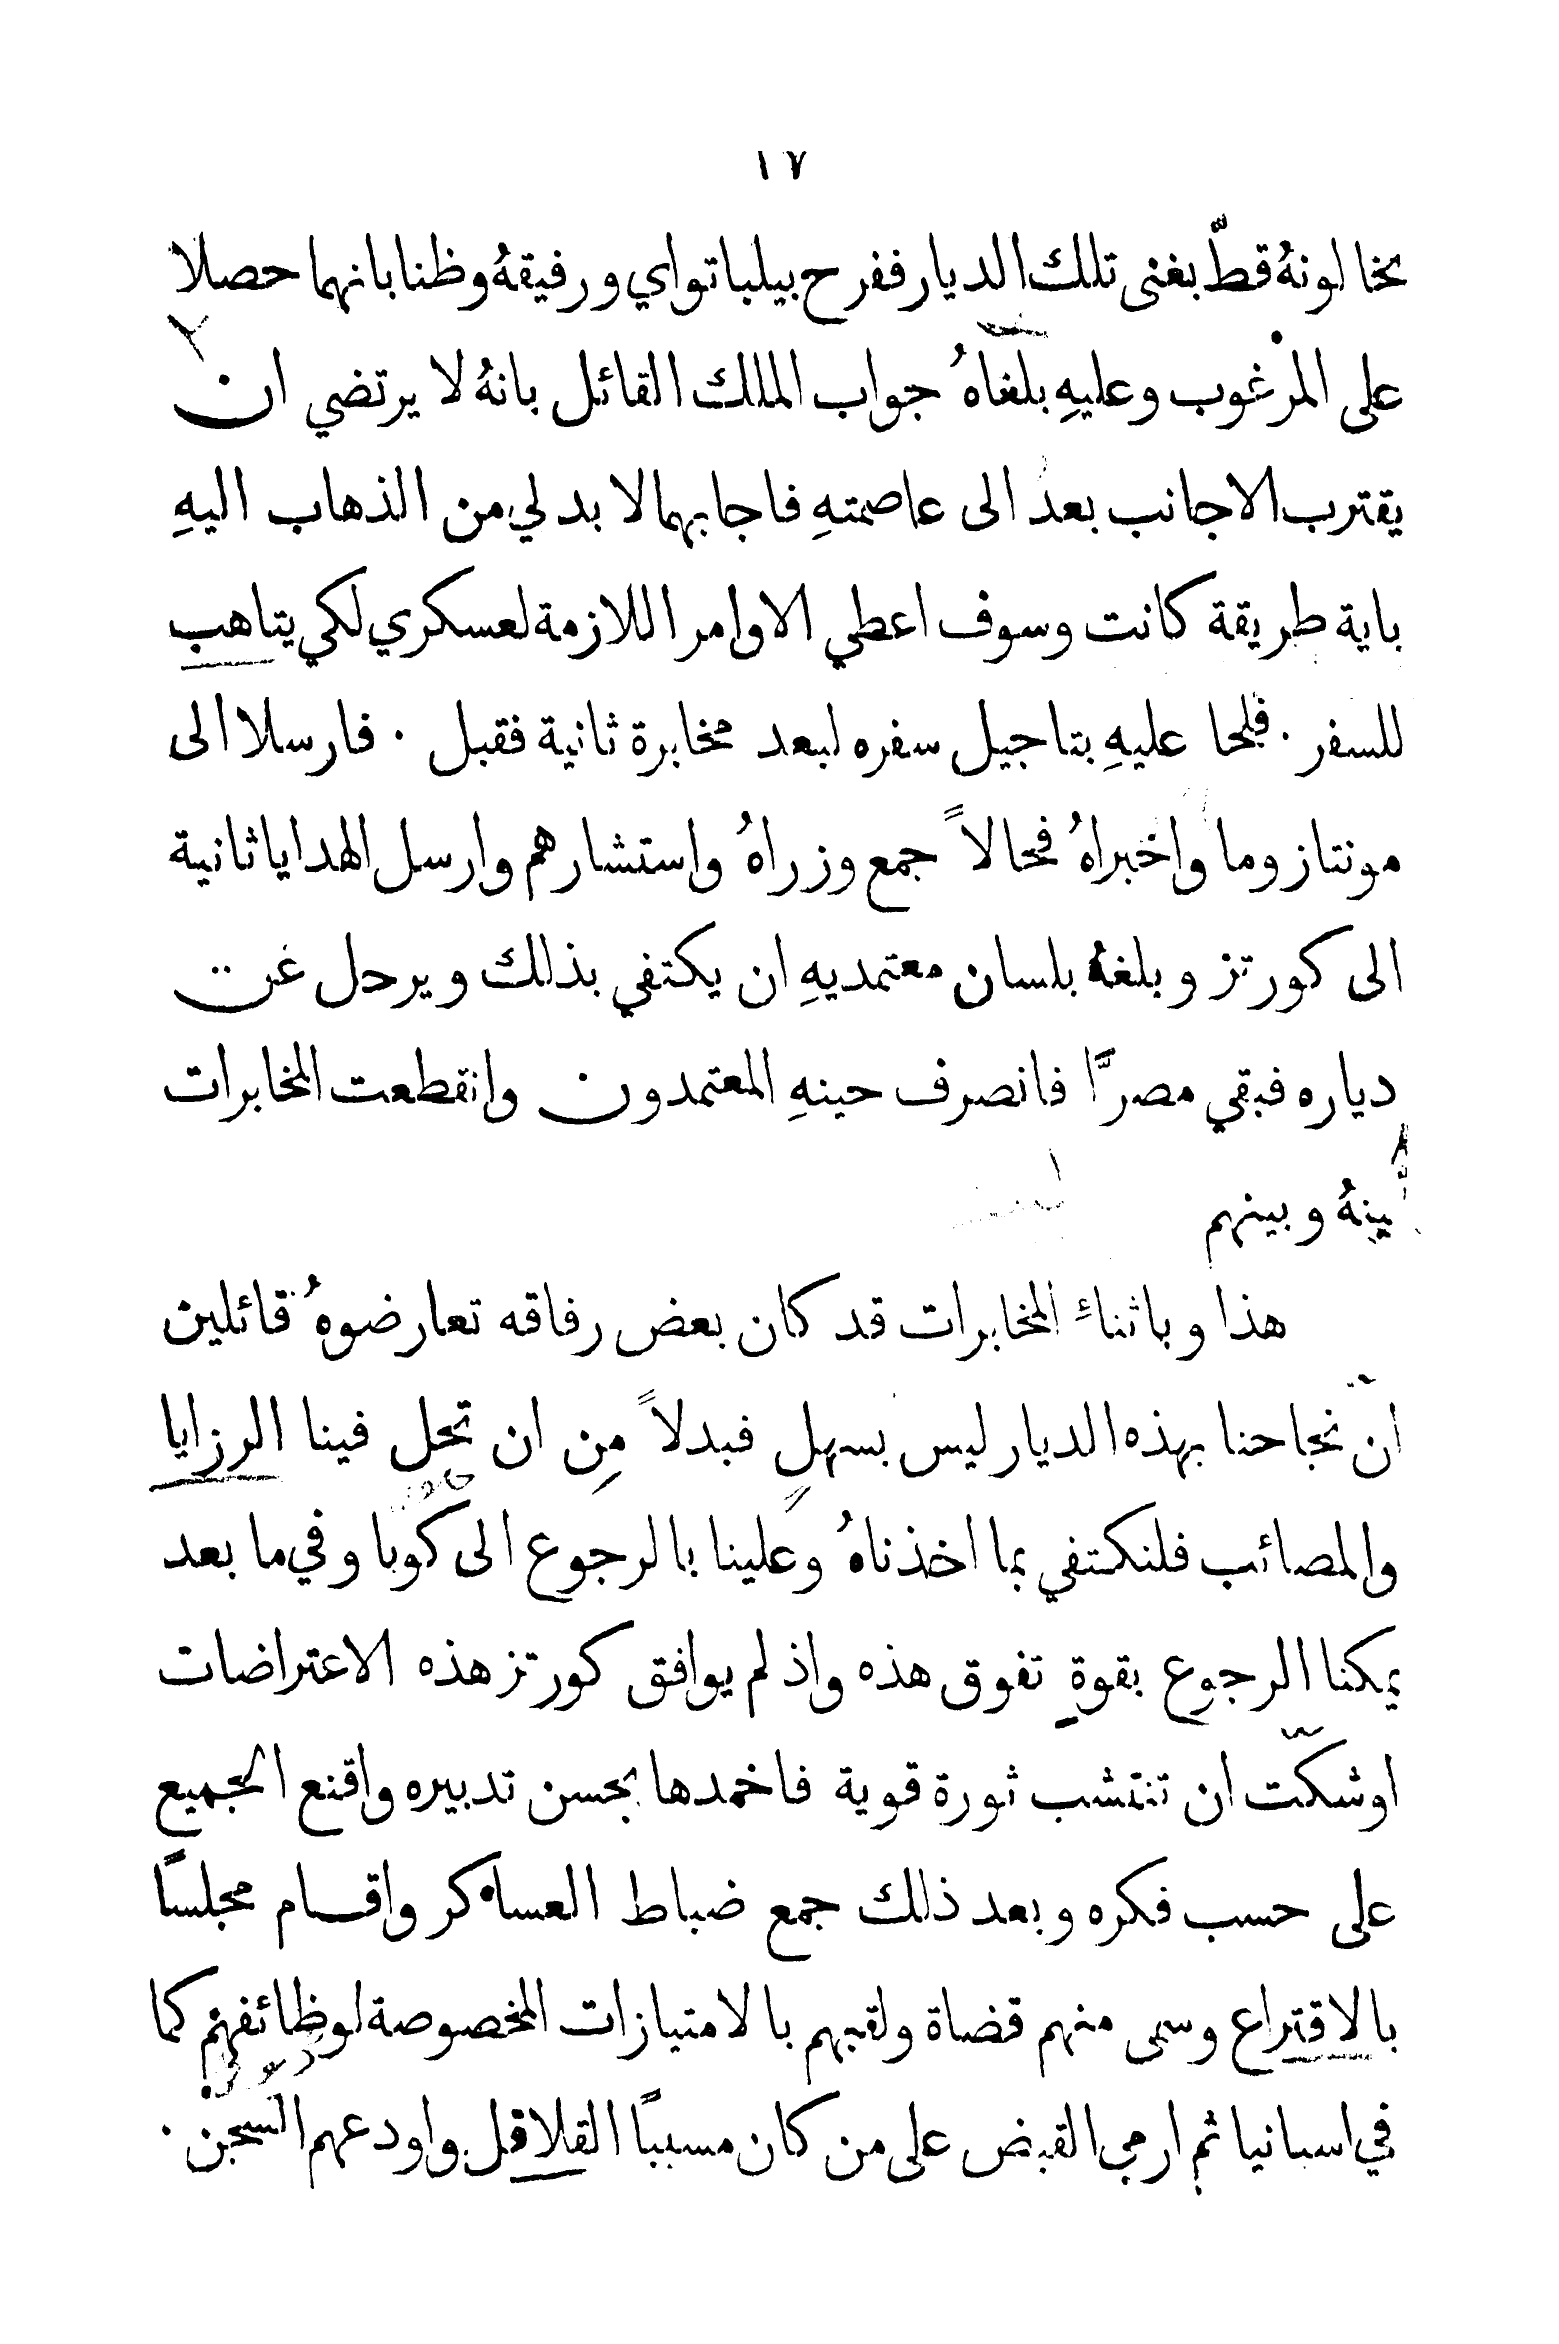 ١٧
يخالونهُ قطّ بغنى تلك الديار ففرح بيلباتواي ورفيقهُ وظنا بانهما حصلا
على المرغوب وعليهِ بلغاهُ جواب الملك القائل بانهُ لا يرتضي ان
يقترب الاجانب بعد الى عاصمتهِ فاجابهما لا بد لي من الذهاب اليهِ
باية طريقة كانت وسوف اعطي الاوامر اللازمة لعسكري لكي يتاهب
للسفر . فلحا عليهِ بتاجيل سفره لبعد مخابرة ثانية فقبل . فارسلا الى
مونتازوما واخبراهُ فحالاً جمع وزراهُ واستشارهم وارسل الهدايا ثانية
الى كورتز وبلغهُ بلسان معتمديهِ ان يكتفي بذلك ويرحل عن
دياره فبقي مصرًّا فانصرف حينهِ المعتمدون وانقطعت المخابرات
بينهُ وبينهم
هذا وباثناءِ المخابرات قد كان بعض رفاقه تعارضوهُ قائلين
انّ نجاحنا بهذه الديار ليس بسهلٍ فبدلاً مِن ان تحل فينا الرزايا
والمصائب فلنكتفي بما اخذناهُ وعلينا بالرجوع الى كوبا وفي ما بعد
يمكنا الرجوع بقوةٍ تفوق هذه واذ لم يوافق كورتز هذه الاعتراضات
اوشكّت ان تنتشب ثورة قوية فاخمدها بحسن تدبيره واقنع الجميع
على حسب فكره وبعد ذلك جمع ضباط العساكر واقسام مجلسًا
بالاقتراع وسمى منهم قضاة ولقبهم بالامتيازات المخصوصة لوظائفهم كما
في اسبانيا ثم ارمى القبض على من كان مسببًا القلاقل واودعهم السجن .